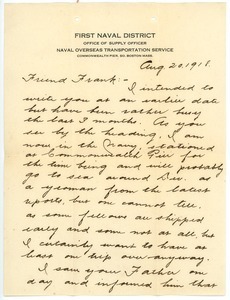 FIRST NAVAL DISTRICT
OFFICE OF SUPPLY OFFICER
NAVAL OVERSEAS TRANSPORTATION SERVICE
COMMONWEALTH PIER, SO. BOSTON, MASS.
Aug 20, 1918
Friend Frank:-
I intended to
write you at an earlier date
but have been rather busy
the last 3 months. As you
see by the heading, I am
now in the Navy, stationed
at Commonwealth Pier for
the time being and will probably
go to sea around Dec. as
a yeoman from the latest
reports, but one cannot tell,
as some fellows are shipped
early and some not at all but
I certainly want to have at
least one trip over anyway.
I saw your Father one
day and informed him that